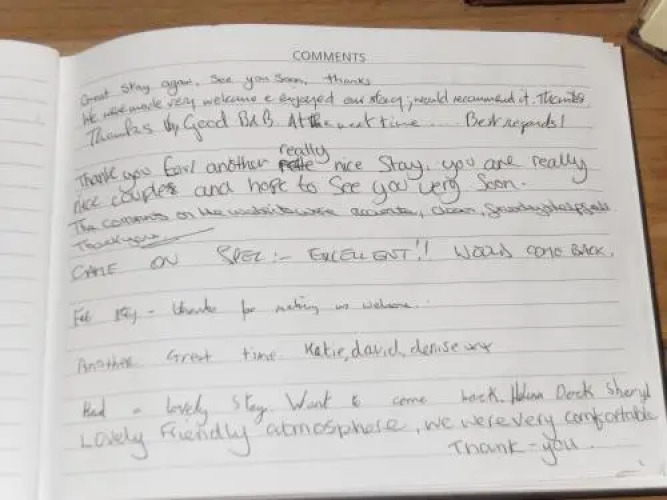 COMMENTS
Great Stay again, See you Soon, thanks
We were made very welcome & enjoyed our stay; would recommend it. Thanks
Thanks Good B&B At the next time .... Best regards!
really
Thank you for another nice Stay. you are really
nice couples and hope to See you very Soon.
The comments on the website were accurate, clean,
Thank you
CAME ON SPEC :- EXCELLENT!! WOULD COME BACK.
Stay - thanks for making us welcome.
Another Great time Katie, david, denise xx
Had a lovely Stay. Want to come back. Sheryl
Lovely Friendly atmosphere, we were very comfortable
Thank-you.